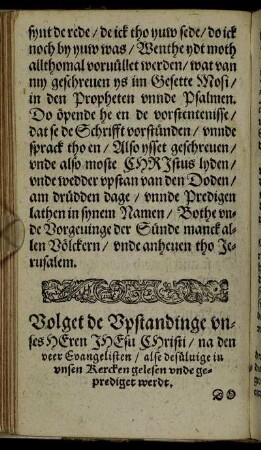 synt de rede / de ick tho yuw sede / do ick
noch by yuw was / Wenthe ydt moth
allthomal voruüllet werden / wat van
my geschreuen ys im Gesette Mosi /
in den Propheten vnnde Psalmen.
Do öpende he en de vorstentenisse /
dat se de Schrifft vorstünden / vnnde
sprack tho en / Also ysset geschreuen /
vnde also moste CHRIstus lyden /
vnde wedder vpstan van den Doden /
am drüdden dage / vnnde Predigen
lathen in synem Namen / Bothe vn-
de Vorgeuinge der Sünde manck al-
len Völckern / vnde anheuen tho Je-
rusalem.
Volget de Vpstandinge vn-
ses HEren JHEsu CHristi / na den
veer Euangelisten / alse desüluige in
vnsen Kercken gelesen vnde ge-
prediget werdt.
DO